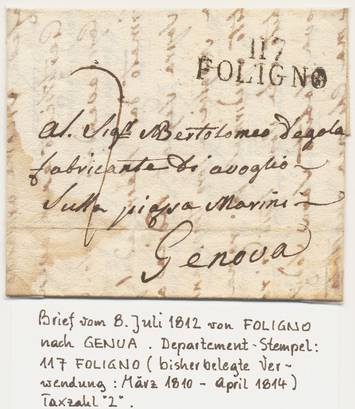 117
FOLIGNO
Al Sigr Bertolomeo Degola
fabricante di avoglio
Sulla piassa Marini
Genova
Brief vom 8. Juli 1812 von FOLIGNO
nach GENUA. Departement-Stempel:
117 FOLIGNO (bisher belegte Ver-
wendung: März 1810 - April 1814)
Taxzahl "2".